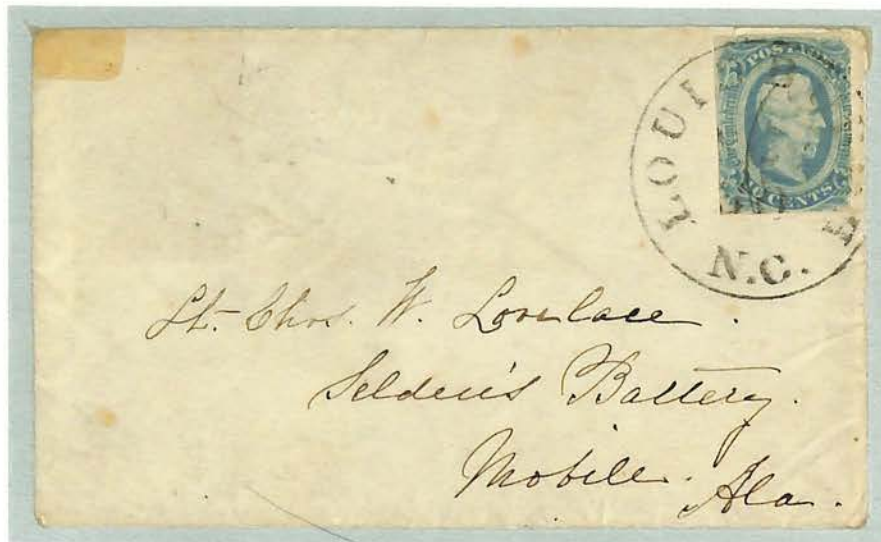 POSTAGE
CENTS
LOUI
N.C.
Lt. Chas. W. Lovelace.
Selden's Battery.
Mobile. Ala.